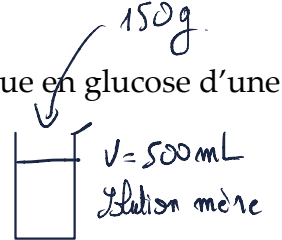 150g
ue en glucose d'une
V = 500 mL
Solution mère